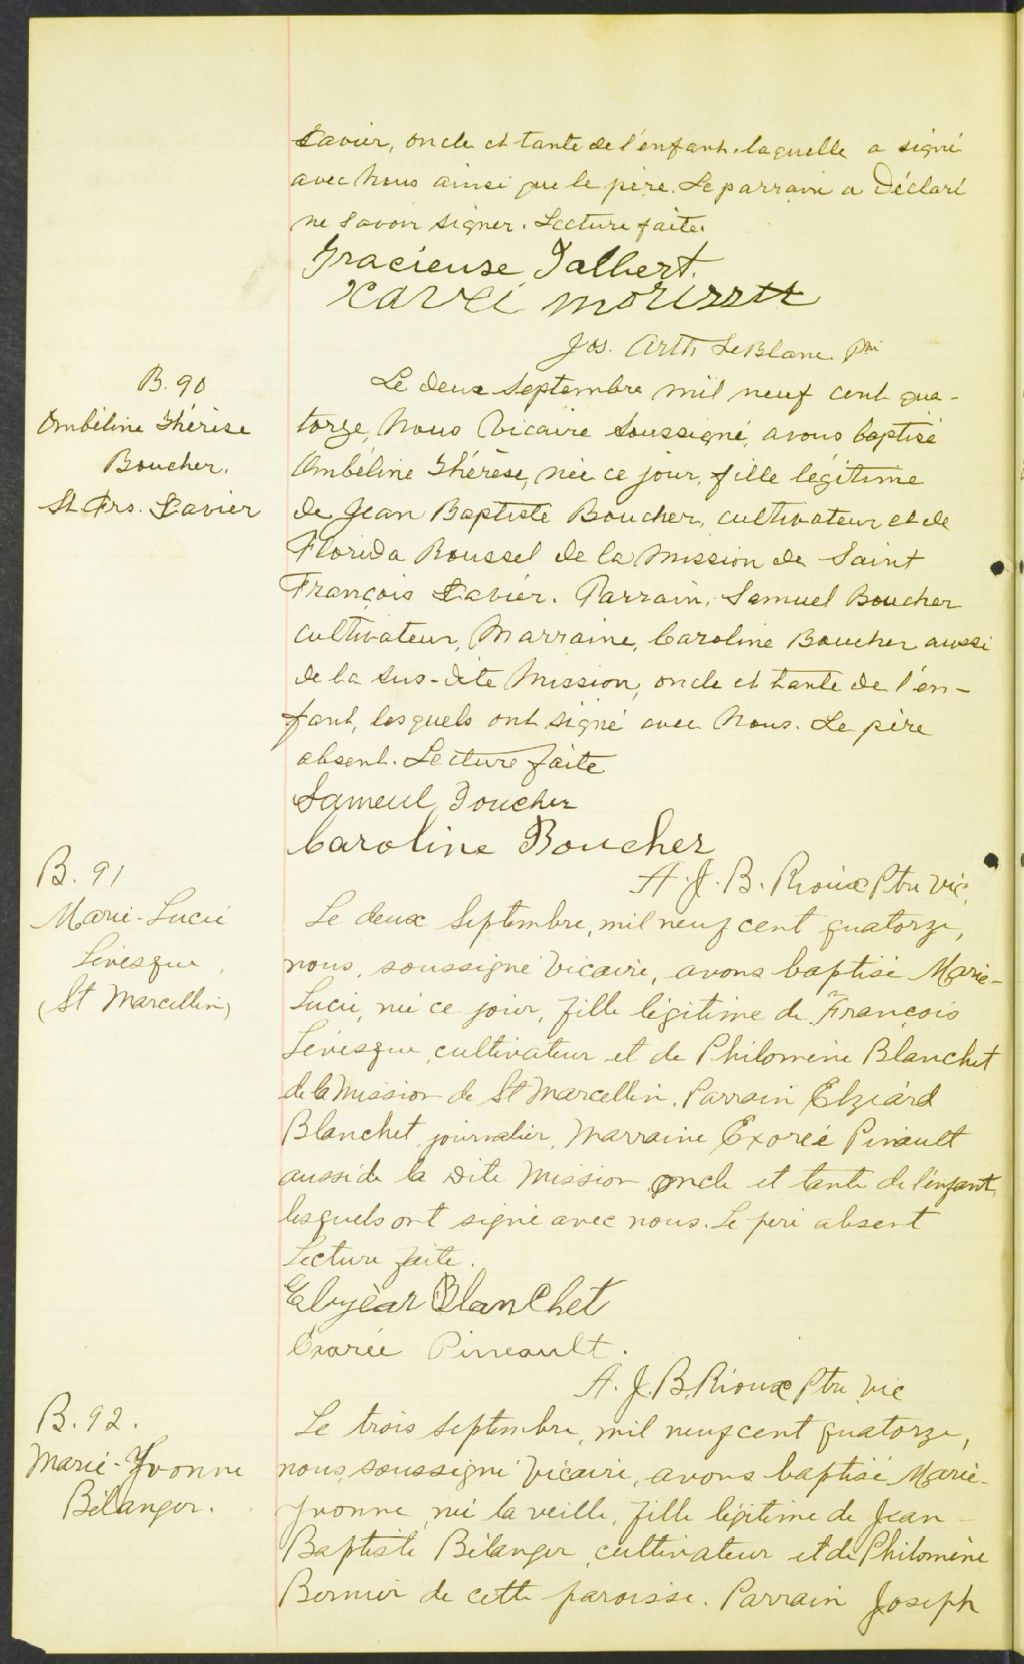 Xavier, oncle et tante de l'enfant, laquelle a signé
avec nous ainsi que le père. Le parrain a déclaré
ne savoir signer. Lecture faite.
Gracieuse Jalbert.
Jos. Arth LeBlanc
B. 90
Ombéline Thérèse
Boucher.
St Frs. Xavier
Le deux Septembre mil neuf cent qua-
torze, Nous Vicaire Soussigné, avons baptisé
Ombéline Thérèse, née ce jour, fille légitime
de Jean Baptiste Boucher, cultivateur et de
Florida Roussel de la Mission de Saint
François Xavier. Parrain, Samuel Boucher
cultivateur, Marraine, Caroline Boucher aussi
de la sus-dite Mission, oncle et tante de l'en-
fant, lesquels ont signé avec Nous. Le père
absent. Lecture faite
Sameul Boucher
Caroline Boucher
A. J. B. Rioux Ptre Vic.
B. 91
Marie-Lucie
Lévesque
(St Marcellin)
Le deux Septembre, mil neuf cent quatorze,
nous, soussigné Vicaire, avons baptisé Marie-
Lucie, née ce jour, fille légitime de François
Lévesque, cultivateur et de Philomène Blanchet
de la Mission de St Marcellin. Parrain Elzéard
Blanchet, journalier, Marraine Exorée Pinault
aussi de la dite Mission oncle et tante de l'enfant,
lesquels ont signé avec nous. Le père absent
Lecture faite.
Blanchet
Exorée Pineault.
A. J. B. Rioux Ptre Vic
B. 92.
Marie-Yvonne
Bélanger.
Le trois Septembre, mil neuf cent quatorze,
nous, soussigné Vicaire, avons baptisé Marie-
Yvonne, née la veille, fille légitime de Jean-
Baptiste Bélanger, cultivateur et de Philomène
Bernier de cette paroisse. Parrain Joseph